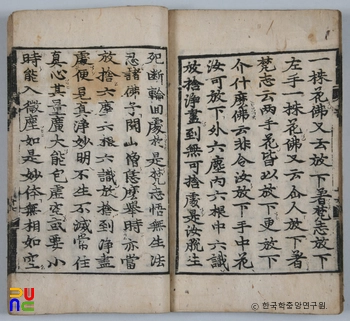 一株花佛又云放下著梵志放下
左手一株花佛又云仙人放下著
梵志云兩手花皆以放下更放下
介什麽佛云非令汝放下手中花
汝可放下外六塵内六根中六識
放捨淨盡到無可捨處是汝脫生
死断輪回處於是梵志悟無生法
忍諸佛子開山僧陞座舉時亦當
放捨六塵六根六識放捨到淨盡
處便見真淨妙明不生不滅常住
真心其量廣大能包虛空或要小
時能入微塵如是妙体無相如空
ⓒ 한국학중앙연구원